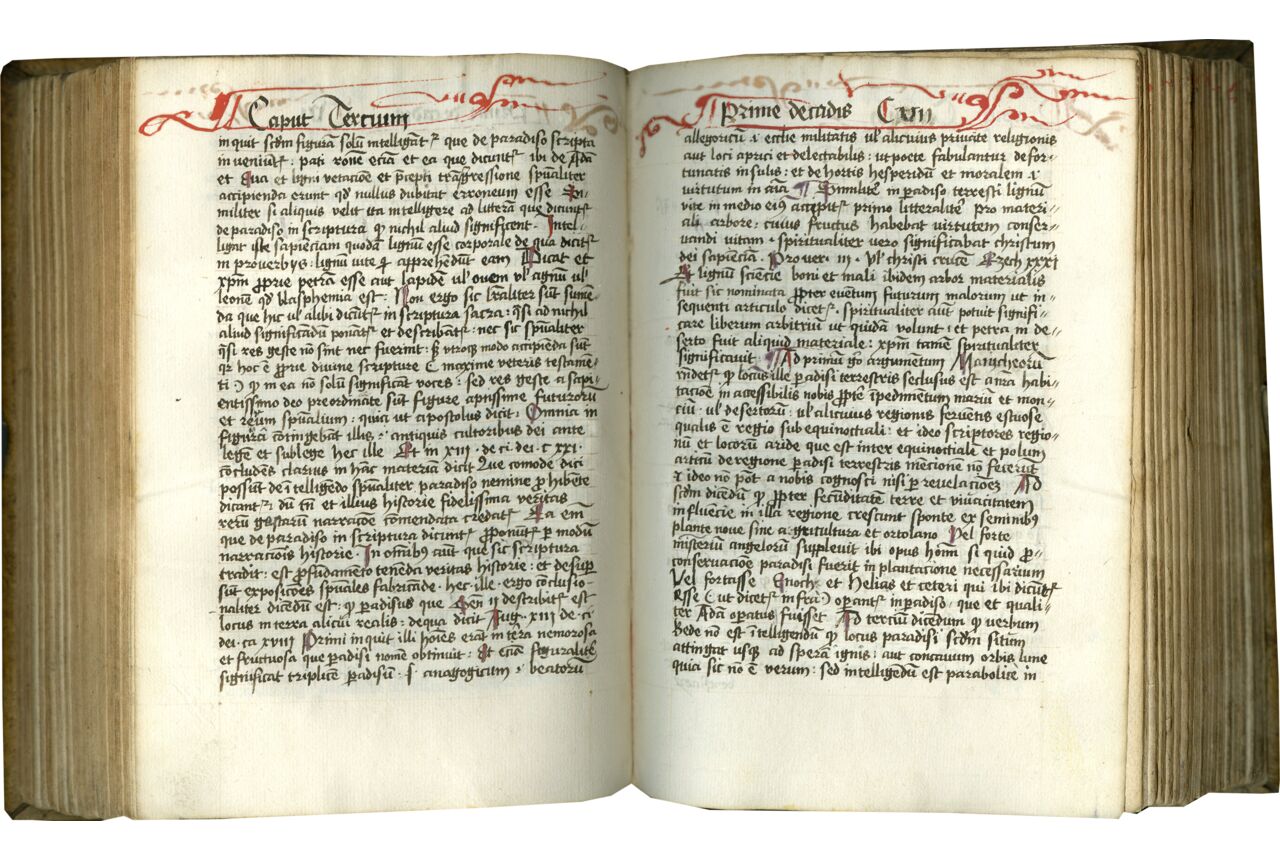 Caput Tercium
inquit scdm figurā solū intelligāt᷑ que de paradiso scripta
inveniūt᷑: pati rōne eciā et ea que dicūt᷑ ibi de Adā
et Eva et ligni vetacione et p̄cepti trāsgressione spūaliter
accipienda erunt qd nullus dubitat erroneum esse Si-
militer si aliquis velit ita intelligere ad literā que dicūt᷑
de paradiso in scriptura ꝙ nichil aliud significent. Intel-
ligat iste sapienciam quodā lignū esse corporale de qua dicit᷑
in proverbys: lignū vite ē apprehēdūt eam Dicat et
xpm̄ ꝓprie petrā esse aut lapidē vl̓ ovem vl̓ agnū vl̓
leonē qd blasphemia est: Non ergo sic lr̄aliter sūt sume-
da que hic vl̓ alibi dicūt᷑ in scriptura sacra: qsi ad nichil
aliud significādū ponāt᷑ et describāt᷑: nec sic spūaliter
qsi res geste nō sint nec fuerint: s᷑ utroqꝫ modo accipienda sūt
qr hoc ē ꝓprie divine scripture et maxime veteris testame-
ti ꝙ in ea nō solū significāt voces: sed res geste a sapi-
entissimo deo preordinate sūt figure aptissime futurorū
et rerum spūalium: quia ut apostolus dicit: Omnia in
figura cōtingebāt illis: antiquis cultoribus dei ante
legē et sub lege hec ille Et in XIII de ci. dei. c XXI
cōcludēs clarius in hāc materiā dicit Que comode dici
possūt de ītelligēdo spūaliter paradiso nemine ꝓhibēte
dicant᷑ dū tn̄ et illius historie fidelissima veritas
rerū gestarū narracōe cōmendata credat᷑ Ea em̄
que de paradiso in scriptura dicunt᷑ ꝓponūt᷑ ꝑ modū
narracionis historie. In omībus aūt que sic scriptura
tradit: est ꝓ fūdamēto tenēda veritas historie: et desuꝑ
sūt exposiciōes spūales fabricāde. hec. ille. ergo cōclusio-
naliter dicēdū est: ꝙ ꝑadisus que Gen̄ II describit᷑ est
locus in terra alicui realis: de qua dicit Aug. XIII de ci
dei. ca XVIII Primi inquit illi hoīes erāt in terra nemorosa
et fructuosa que ꝑadisi nomē obtinuit. Et eciā figuralite
significat triplicē ꝑadisū: s. anagogicum. beatorū
Prime decadis CXIII
allegoricū ecclie militatis vl̓ alicuius private religionis
aut loci aprici et delectabilis: ut poete fabulantur de for-
tunatis insulis: et de hortis hesperidū et moralem
virtutum in aīa Similitē in ꝑadiso terrestri lignum
vite in medio eiꝰ accepit᷑ primo litteralitē pro materi-
ali arbore: cuius fructus habebat virtutem conser-
vandi vitam. spiritualiter vero significabat christum
dei sapienciā. Prover. III. vl̓ christi crucē Ezech XXXI
Et lignū sciēcie boni et mali ibidem arbor materialis
fuit sic nominata ꝓpter eventum futurum malorum ut in-
sequenti articulo dicet᷑. spiritualiter aūt potuit signifi-
care liberum arbitriū ut quidā volunt: et petra in de-
serto fuit aliquid materiale: xpm̄ tamē spiritualiter
significavit Ad primum go argumentum Manicheorū
rn̄det᷑ ꝙ locus ille ꝑadisi terrestris seclusus est a n̄ra habi-
tacioē in accessibilis nobis ꝓpte īpedimētum mariū et mon-
ciū: vl̓ desertorū: vl̓ alicuius regionis ferventis estuose
qualis ē regio sub equinoctiali: et ideo scriptores regio-
nū et locorū aride que est inter equinoctialē et polum
articū de regione ꝑadisi terrestris mēcionē nō fecerūt
et ideo nō pōt a nobis cognosci nisi ꝑ revelacionez Ad
scdm dicēdū ꝙ ꝓpter fecūditatē terre et vivacitatem
influēcie in illa regione crescunt sponte ex seminibꝰ
plante nove sine agricultura et ortolano Vel forte
misteriū angelorū supplevit ibi opus homī si quid ꝓ-
conservacioē paradisi fuerit in plantacione necessarium
Vel fortasse Enoch et Helias et ceteri qui ibi dicūt᷑
esse (ut dicet᷑ infra) operant᷑ in ꝑadiso. que et quali-
ter Adā operatus fuisset Ad terciū dicēdum ꝙ verbum
Bede nō est ītelligendū ꝙ locus paradisi scdm sitim
attingat usqꝫ ad sperā ignis: aut concavum orbis lune
quia sic nō ē verum: sed intelligēdū est parabolice in